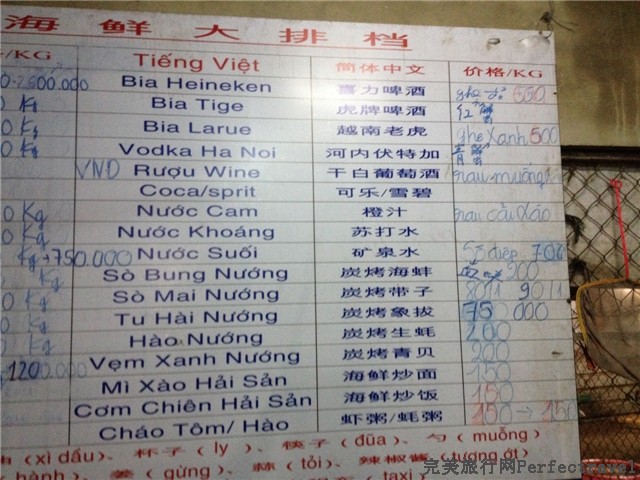 海鲜大排档
/KG Tiếng Việt 简体中文 价格/KG
0-2600.000 Bia Heineken 喜力啤酒 ghẹ đỏ 650
0 Kg Bia Tige 虎牌啤酒 红
0 Kg Bia Larue 越南老虎 ghẹ Xanh 500
0 Kg Vodka Ha Noi 河内伏特加
VND Rượu Wine 干白葡萄酒 rau muống
Coca/sprit 可乐/雪碧
0 Kg Nước Cam 橙汁 rau cải xào
0 Kg Nước Khoáng 苏打水
Kg → 750.000 Nước Suối 矿泉水 Sò điệp
Kg Sò Bung Nướng 炭烤海蚌 200
0 Kg Sò Mai Nướng 炭烤带子
0 Kg Tu Hài Nướng 炭烤象拔 000
0 Kg Hào Nướng 炭烤生蚝 200
1200.000 Vẹm Xanh Nướng 炭烤青贝 200
Mì Xào Hải Sản 海鲜炒面 150
Cơm Chiên Hải Sản 海鲜炒饭 150
Cháo Tôm/ Hào 虾粥/蚝粥 150 → 150
(xì dầu)、杯子(ly)、筷子(đũa)、勺(muỗng)
(hành)、姜(gừng)、蒜(tỏi)、辣椒酱(tương ớt)
(taxi)
完美旅行网Perfectravel